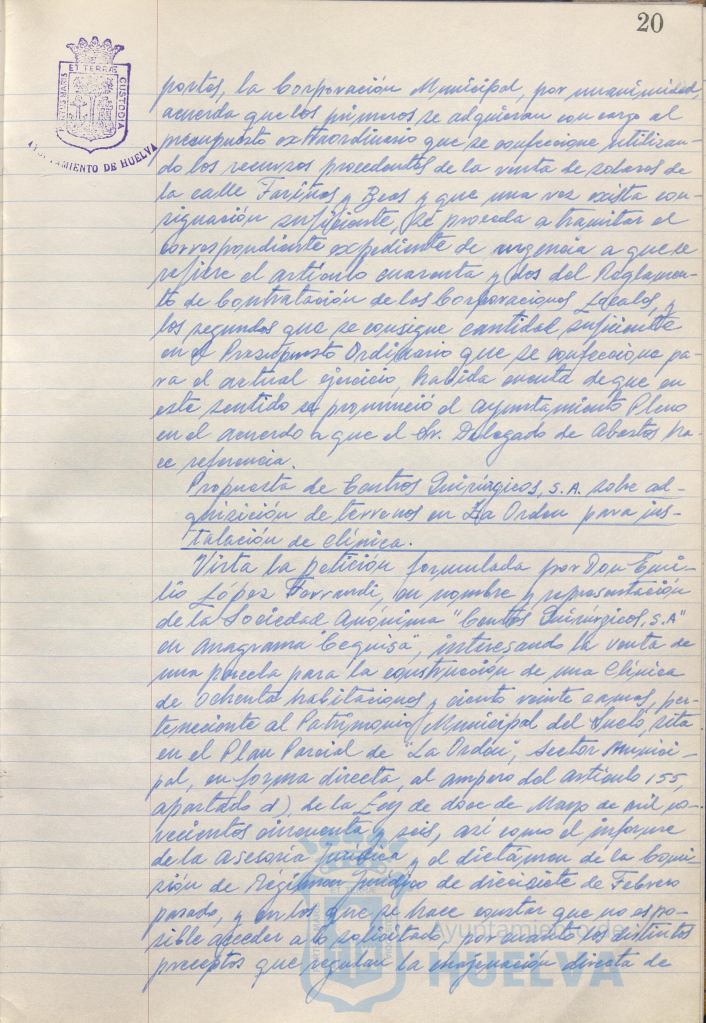 20
PORTUS MARIS
ET TERRAE
CUSTODIA
AYUNTAMIENTO DE HUELVA
portes, la Corporación Municipal, por unanimidad,
acuerda que los primeros se adquieran con cargo al
presupuesto extraordinario que se confeccione utilizan-
do los recursos procedentes de la venta de solares de
la calle Fariñas y Beas y que una vez exista con-
signación suficiente, se proceda a tramitar el
correspondiente expediente de urgencia a que se
refiere el artículo cuarenta y dos del Reglamen-
to de Contratación de las Corporaciones Locales, y
los segundos que se consigne cantidad suficiente
en el Presupuesto Ordinario que se confeccione pa-
ra el actual ejercicio, habida cuenta de que en
este sentido se pronunció el Ayuntamiento Pleno
en el acuerdo a que el Sr. Delegado de Abastos ha-
ce referencia.
Propuesta de Centros Quirúrgicos, S.A. sobre ad-
quisición de terrenos en La Orden para ins-
talación de clínica.
Vista la petición formulada por Don Emi-
lio López Ferrandi, en nombre y representación
de la Sociedad Anónima "Centros Quirúrgicos, S.A"
en anagrama "Cequisa", interesando la venta de
una parcela para la construcción de una Clínica
de ochenta habitaciones y ciento veinte camas, per-
teneciente al Patrimonio Municipal del Suelo, sita
en el Plan Parcial de "La Orden", sector Munici-
pal, en forma directa, al amparo del artículo 155,
apartado d), de la Ley de doce de Mayo de mil no-
vecientos cincuenta y seis, así como el informe
de la Asesoría Jurídica y el dictámen de la Comi-
sión de Régimen Jurídico de diecisiete de Febrero
pasado, y en los que se hace constar que no es po-
sible acceder a lo solicitado, por cuanto los distintos
preceptos que regulan la enajenación directa de
Ayuntamiento de
HUELVA